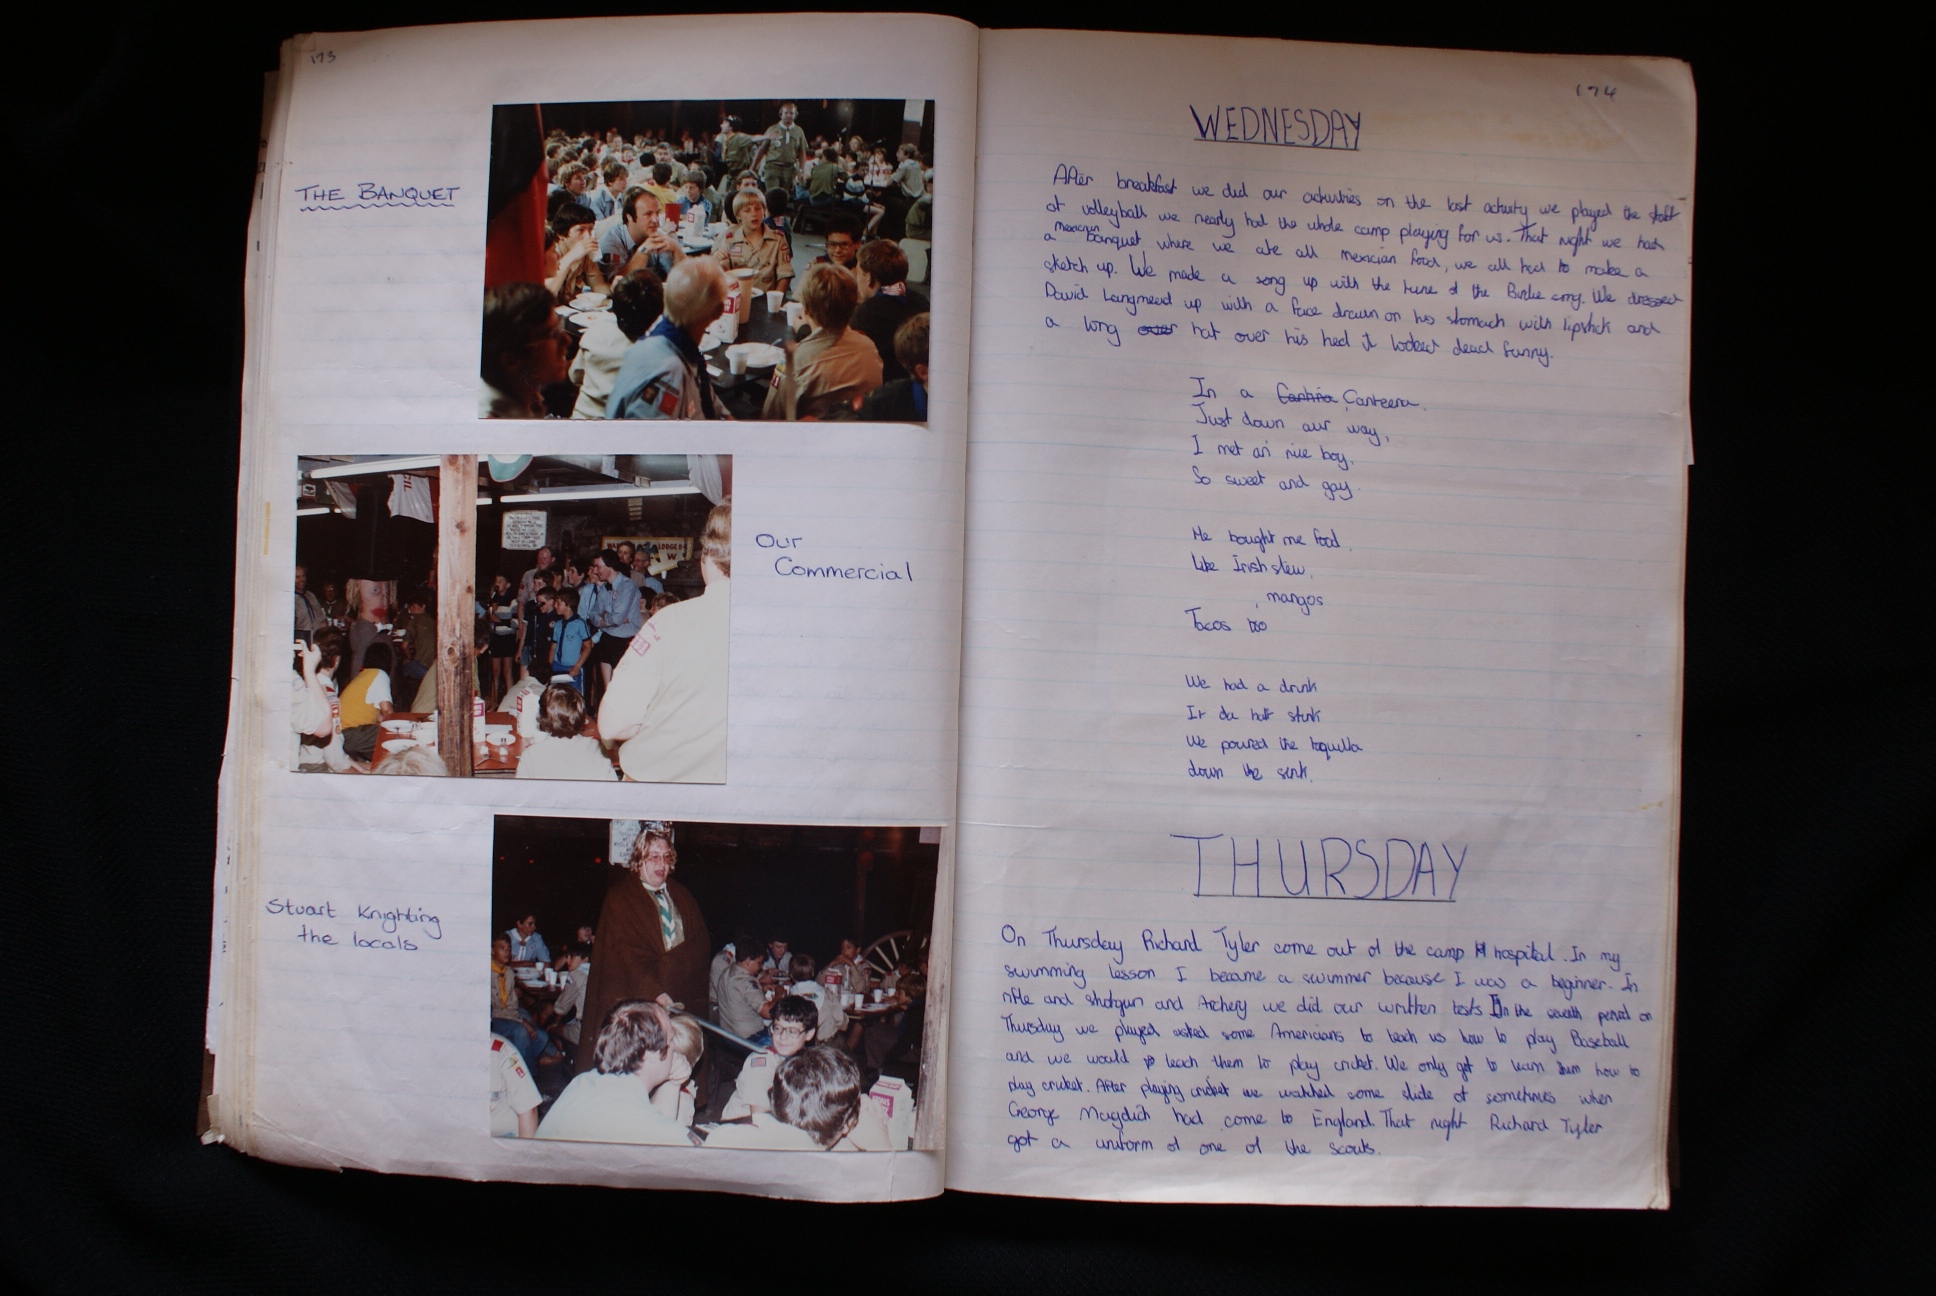 173
THE BANQUET
Our
Commercial
Stuart Knighting
the locals
174
WEDNESDAY
After breakfast we did our activities on the last activity we played the staff
at volleyball we nearly had the whole camp playing for us. That night we had
a mexican banquet where we ate all mexician food, we all had to make a
sketch up. We made a song up with the tune of the Birdie song. We dressed
David Langmead up with a face drawn on his stomach with lipstick and
a long over hat over his hed it looked dead funny.
In a Cantina Canteena.
Just down our way,
I met an nice boy,
So sweet and gay.
He bought me food,
Like Irish stew,
, mangos
Tacos too
We had a drink
It da hott stink
We poured the tequilla
down the sink.
THURSDAY
On Thursday Richard Tyler come out of the camp H hospital. In my
swimming lesson I became a swimmer because I was a beginner. In
rifle and shotgun and Archery we did our written tests In the seventh period on
Thursday we played asked some Americians to teach us how to play Baseball
and we would teach them to play cricket. We only got to learn them how to
play cricket. After playing cricket we watched some slide of sometimes when
George Magdich had come to England. That night Richard Tyler
got a uniform of one of the scouts.